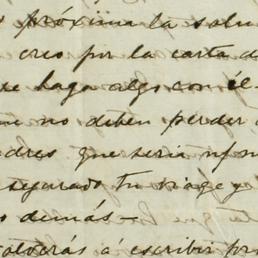 próxima la salu
creo por la carta d
se haga algo con él
no deben perder
dres que seria
segurado tu viage y
demás —
volverás á escribir por